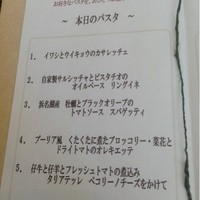 ～ 本日のパスタ ～
1. イワシとウイキョウのカサレッチェ
2. 自家製サルシッチャとピスタチオの
オイルベース リングイネ
3. 浜名湖産 牡蠣とブラックオリーブの
トマトソース スパゲッティ
4. プーリア風 くたくたに煮たブロッコリー・菜花と
ドライトマトのオレキエッテ
5. 仔牛と仔羊とフレッシュトマトの煮込み
タリアテッレ ペコリーノチーズをかけて